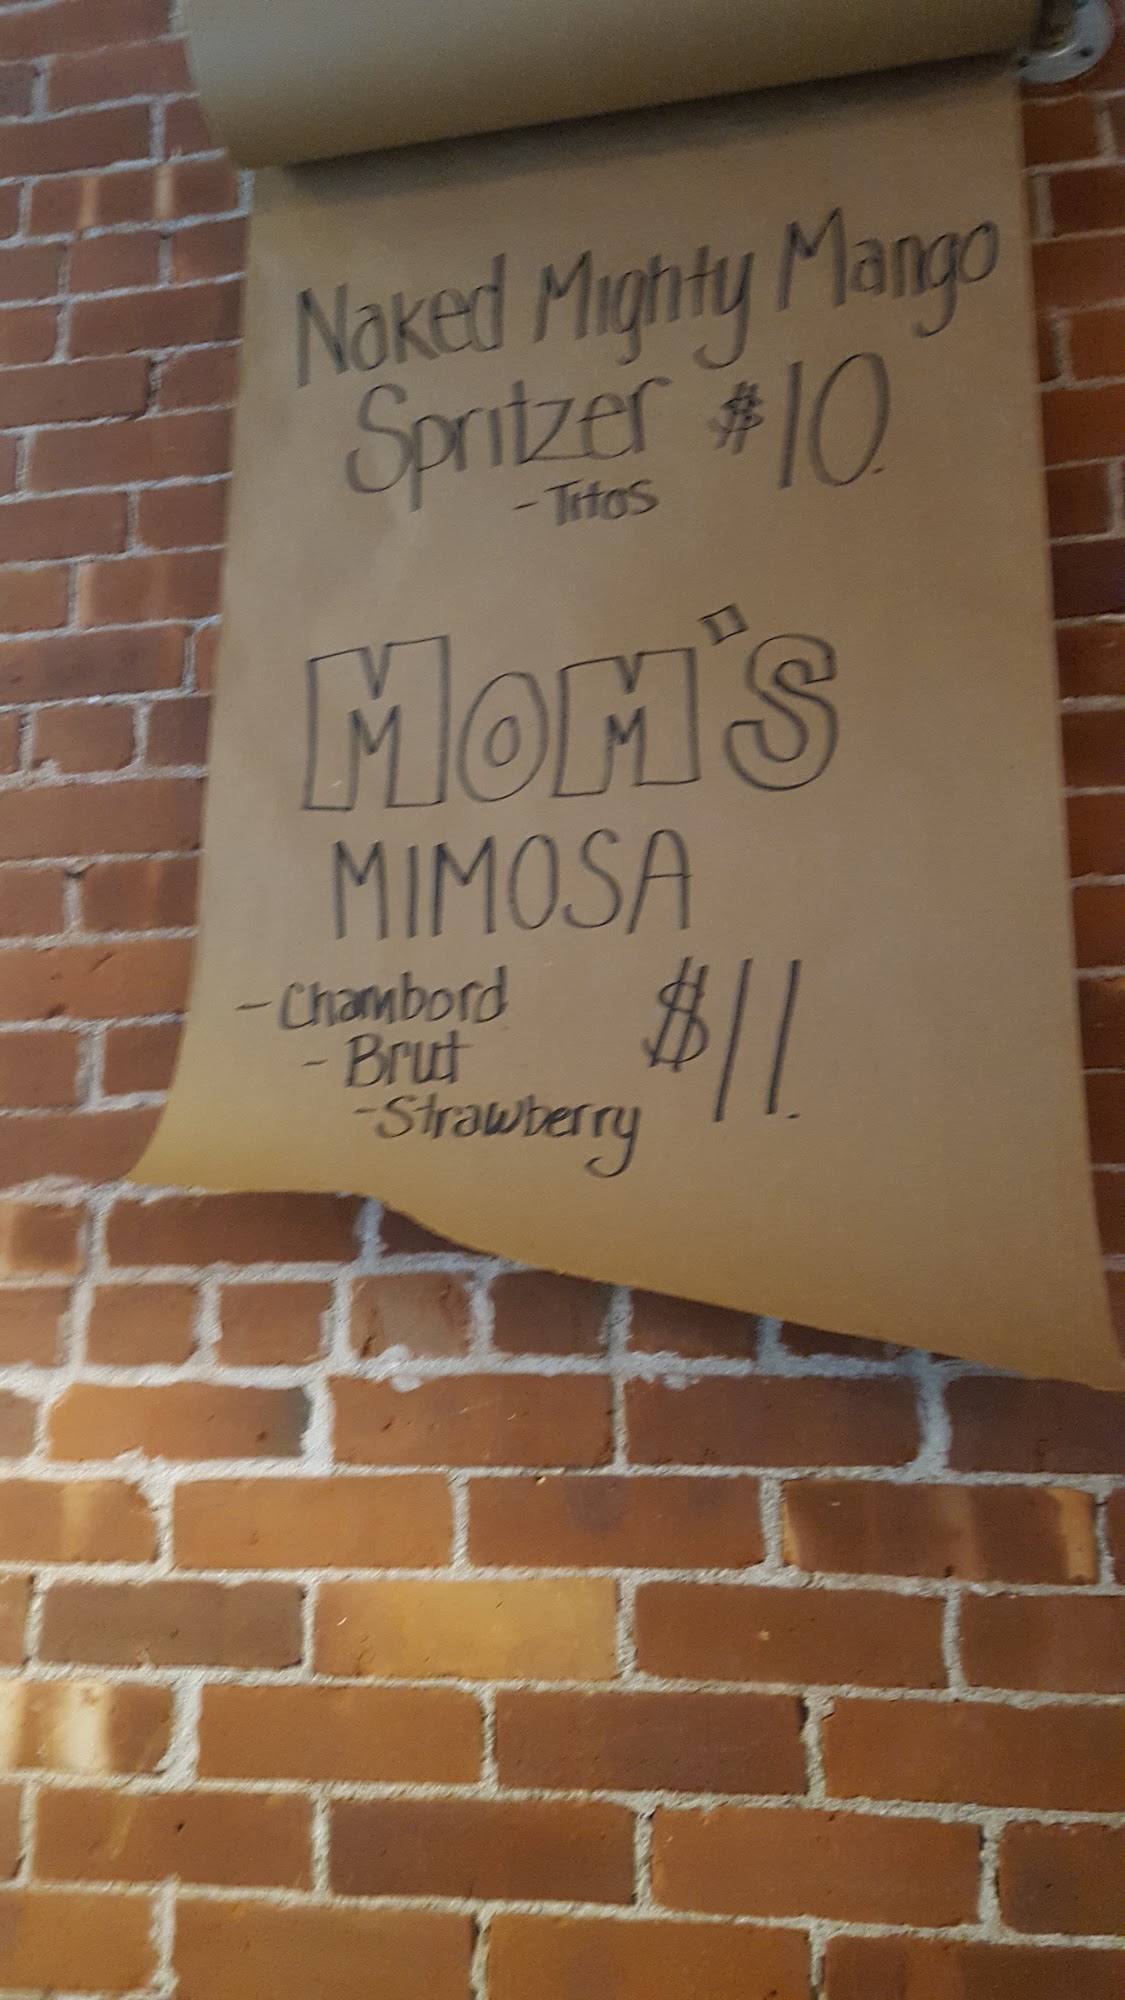 Naked Mighty Mango
Spritzer $10.
- Titos
MOM'S
MIMOSA
- Chambord
- Brut
$11.
- Strawberry